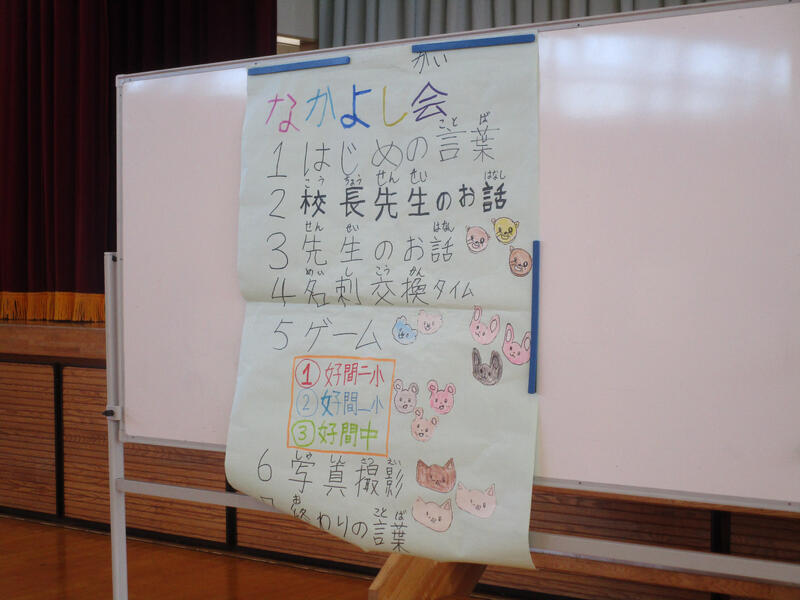 なかよし会
かい
1 はじめの言葉
こと ば
2 校長先生のお話
こう ちょう せん せい はなし
3 先生のお話
せん せい はなし
4 名刺交換タイム
めい し こう かん
5 ゲーム
① 好間二小
② 好間一小
③ 好間中
6 写真撮影
しゃ しん さつ えい
7 お終わりの言葉
こと ば